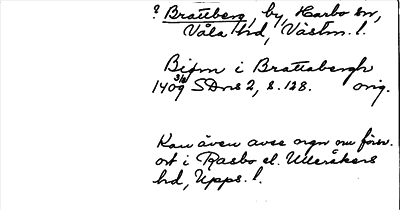 ? Brattberg, by, Harbo sn,
Våla hd, Västm. l.
Björn i Brattabergh
3/2
1409 SDns 2, s. 128. orig.
Kan även avse ngn nu försv.
ort i Rasbo el. Ulleråkers
hd, Upps. l.